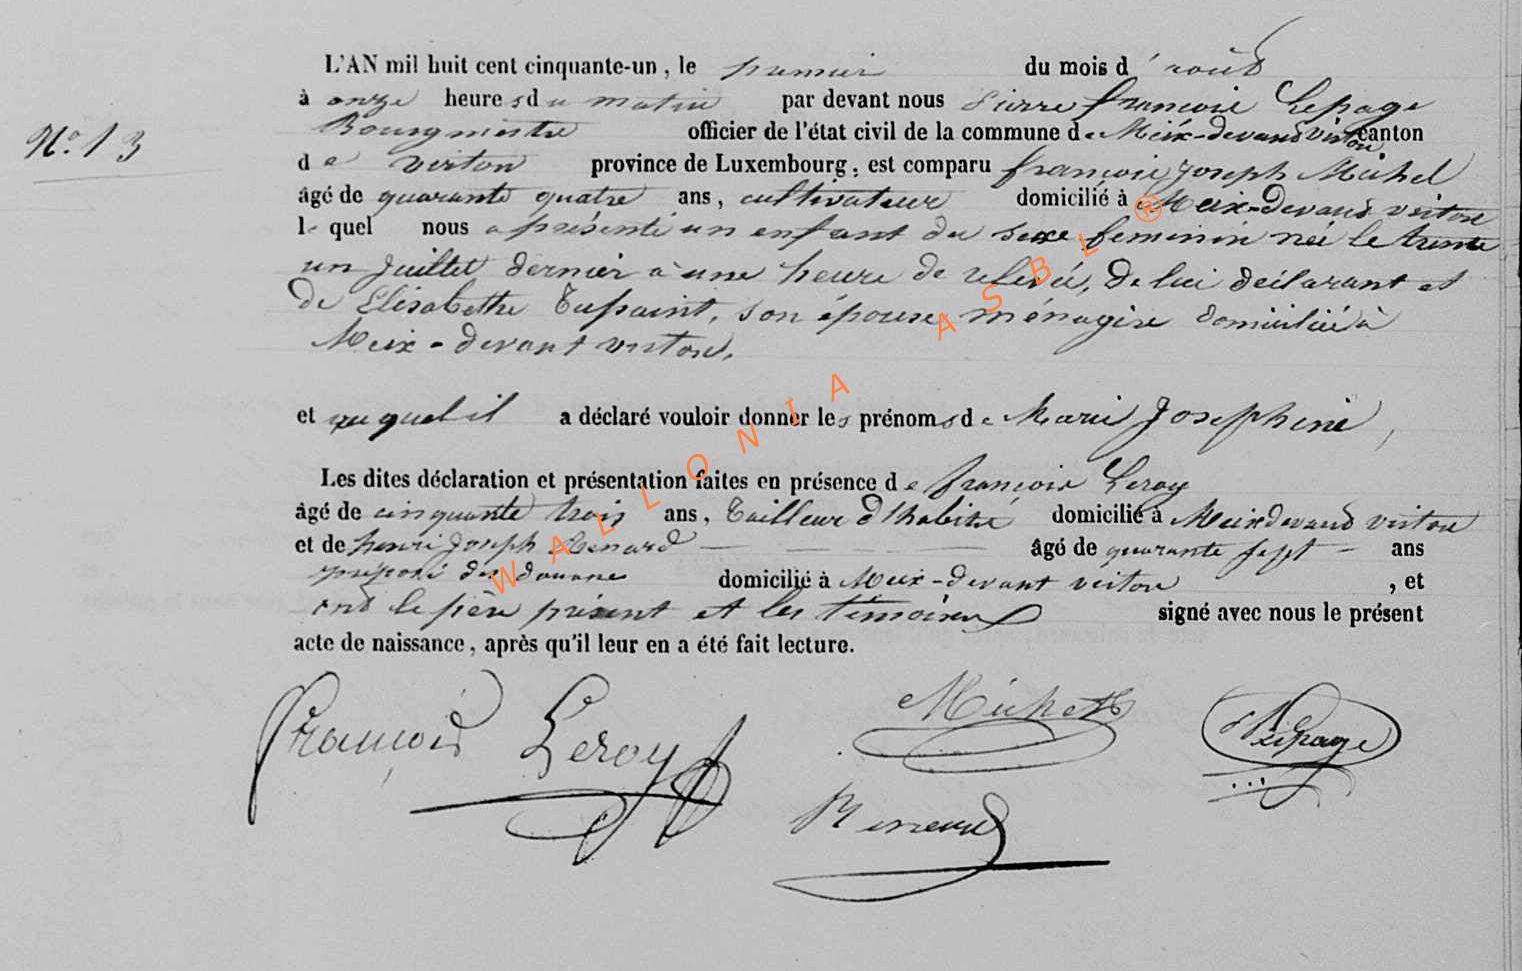 L'AN mil huit cent cinquante-un, le premier du mois d'août
à onze heures du matin par devant nous Pierre françois Lepage
Bourgmestre officier de l'état civil de la commune de Meix-devand virton canton
N° 13
de virton province de Luxembourg, est comparu françois Joseph Michel
âgé de quarante quatre ans, cultivateur domicilié à Meix-devand virton
lequel nous a présenté un enfant du sexe feminin née le trente
un Juillet dernier à une heure de relevée, de lui déclarant et
de Elisabethe Tupaint, son épouse ménagère domiciliée à
Meix-devant virton,
et auquel il a déclaré vouloir donner les prénoms de Marie Josephine,
Les dites déclaration et présentation faites en présence de françois Leroy
âgé de cinquante trois ans, Tailleur d'habits domicilié à Meix devand virton
et de henri Joseph Renard âgé de quarante sept ans
préposé des douane domicilié à Meix-devant virton, et
ont le père présent et les témoins signé avec nous le présent
acte de naissance, après qu'il leur en a été fait lecture.
François Leroy Michel Lepage
Renard
WALLONIA ASBL ®